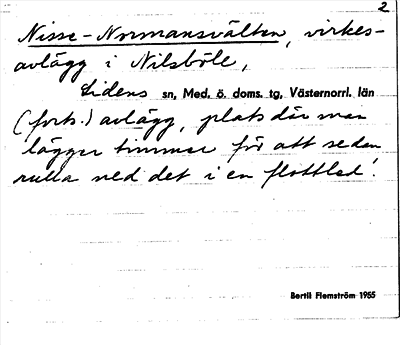 2
Nisse-Normansvälten, virkes-
avlägg i Nilsböle,
Lidens sn, Med. ö. doms. tg, Västernorrl. län
(forts.) avlägg, plats där man
lägger timmer för att sedan
rulla ned det i en flottled.
Bertil Flemström 1965